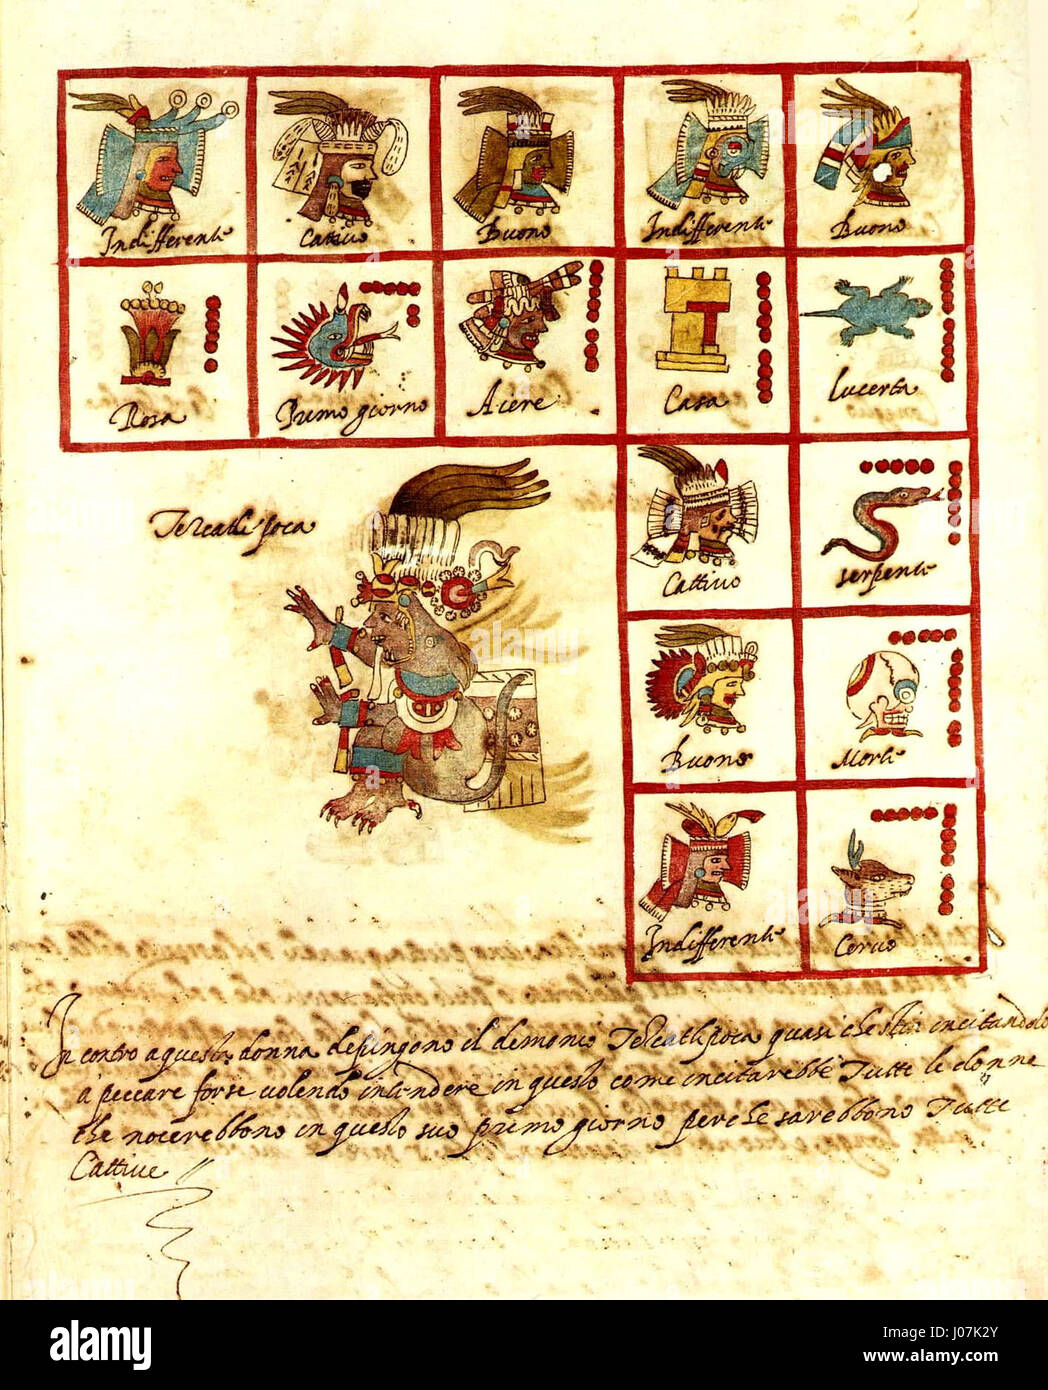 Indifferente
Cattivo
Buono
Indifferente
Buono
Rosa
Primo giorno
Aiere
Casa
Lucerta
Cattivo
serpente
Tezcatlipoca
Buono
Morte
Indifferente
Cervo
Incontro a questa donna depingono il demonio Tezcatlipoca quasi che stia incitandolo
a peccare forse volendo intendere in questo come incitarebbe Tutte le donne
che nocerebbono in questo suo primo giorno perche sarebbono Tutte
Cattive
alamy
alamy
www.alamy.com
Image ID: J07K2Y